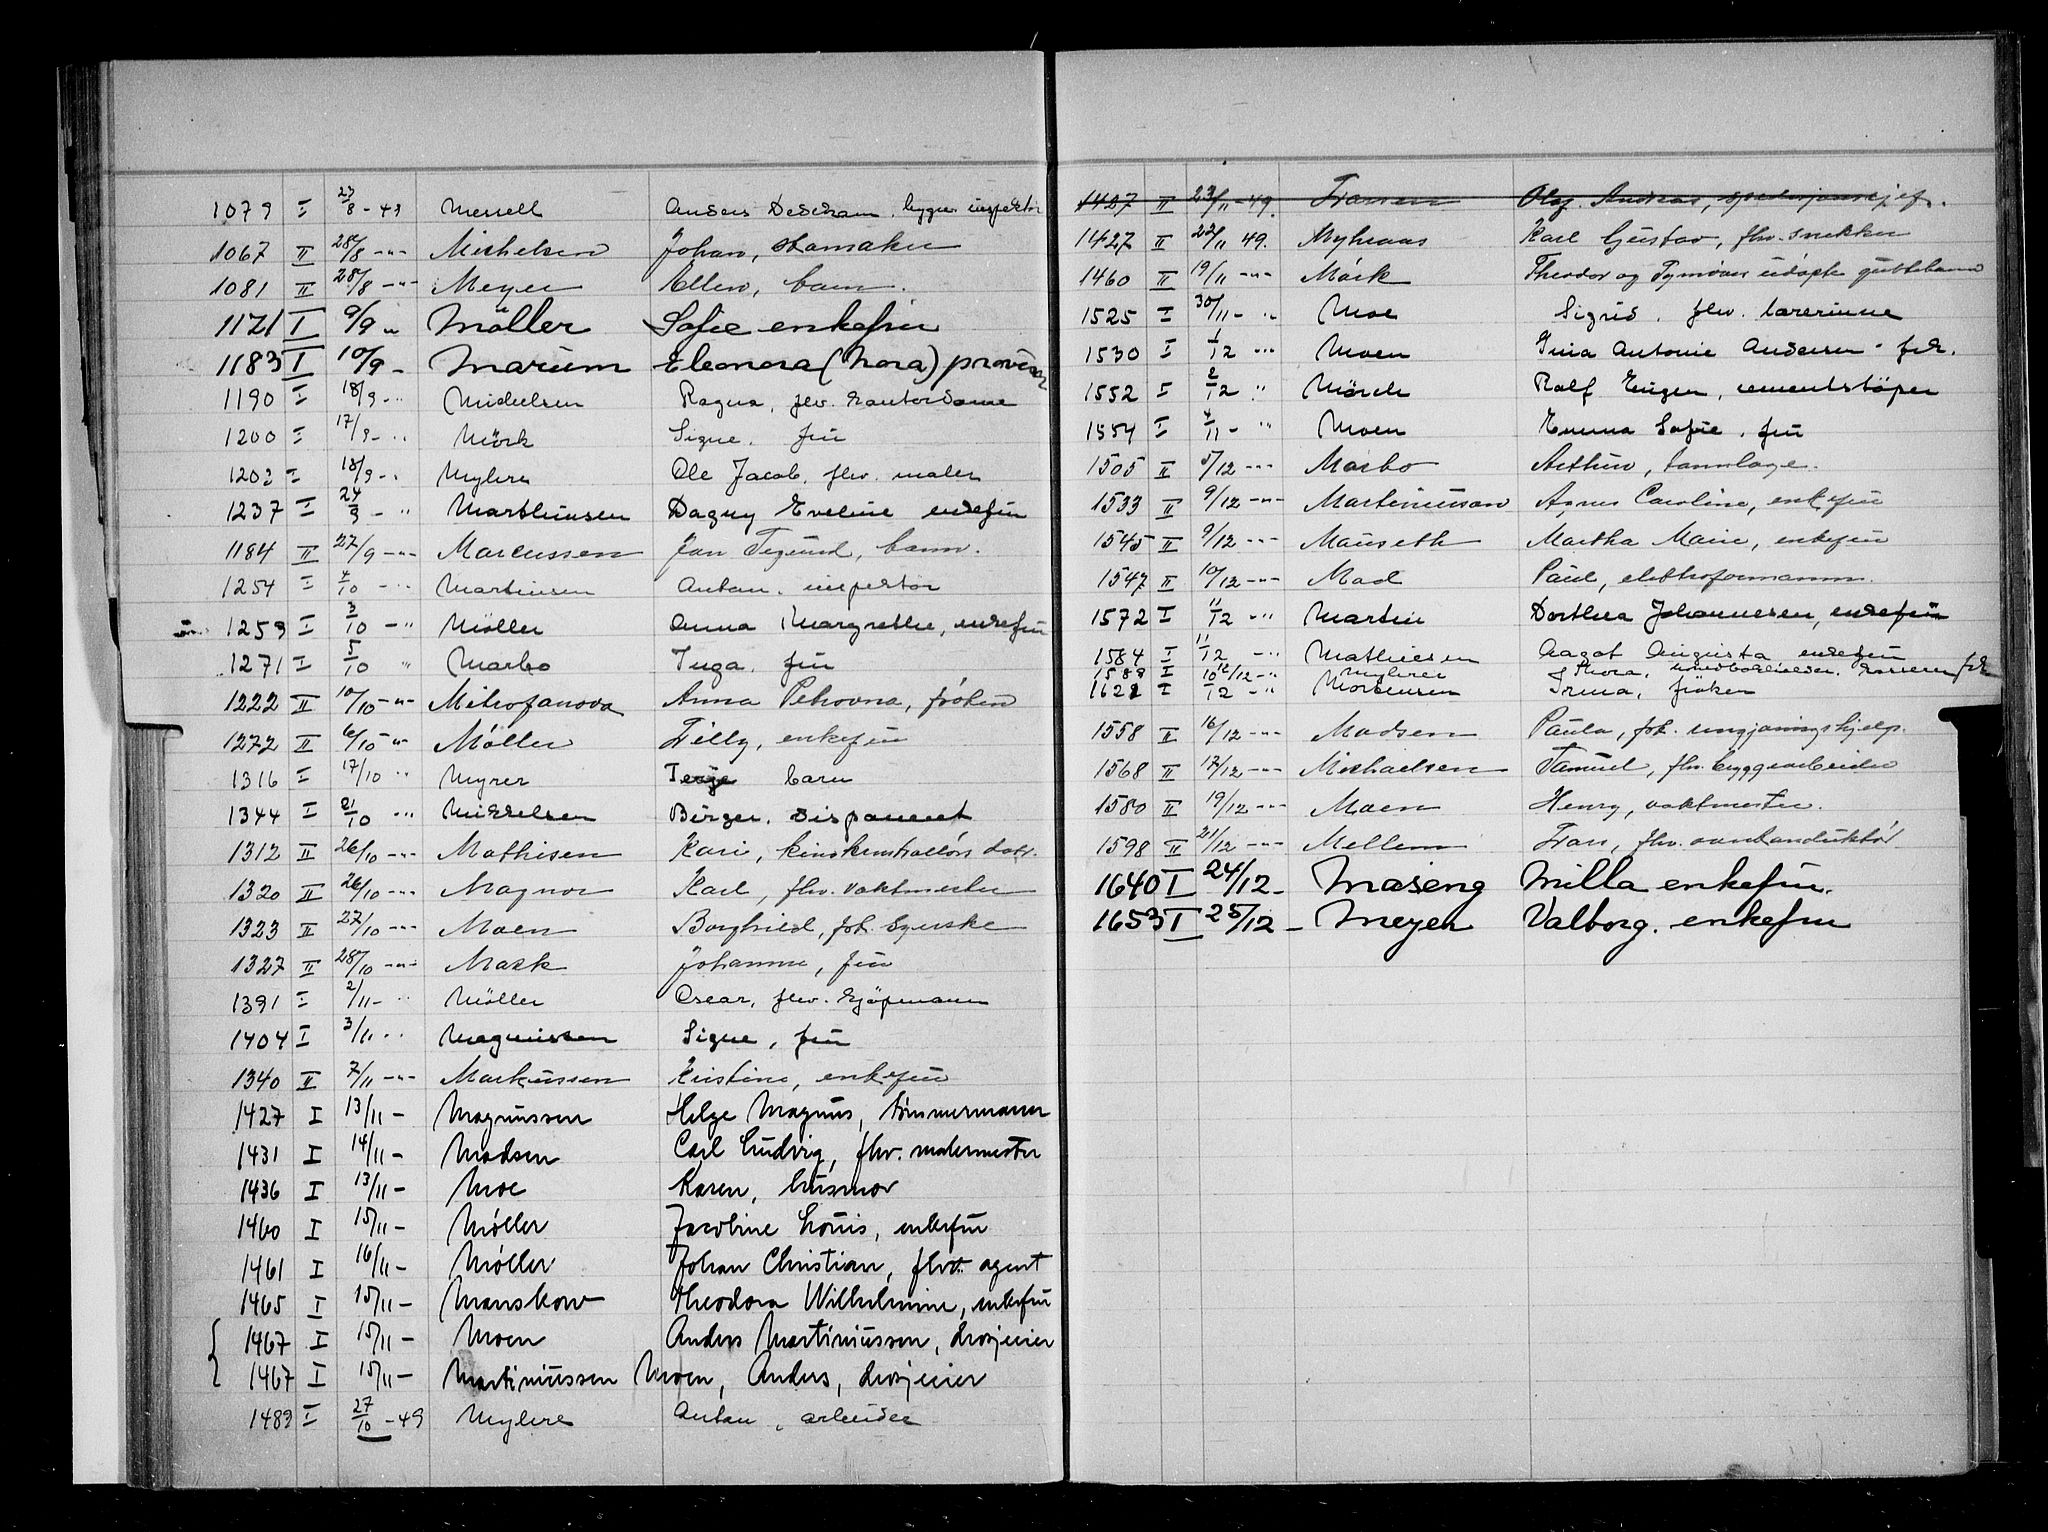 1079 I 23/8 - 49 Messell Anders Dedekam, bygn. inspektør
1067 II 28/8 -"- Michelsen Johan, skomaker
1081 II 28/8 -"- Meyer Ellen, barn.
1121 I 9/9 " Möller Sofie enkefru
1183 I 10/9 - Marum Eleonora (Nora) provisor
1190 I 18/9 - " Michelsen Ragna, fhv. kontordame
1200 I 17/9 - " Mörk Signe, fru
1203 I 18/9 - " Myhre Ole Jacob, fhv. maler
1237 I 24/9 - " Marthinsen Dagny Eveline enkefru
1184 II 27/9 -"- Marcussen Jan Sigurd, barn.
1254 I 4/10 - " Martinsen Anton, inspektør
1259 I 3/10 - " Möller Anna Margrethe, enkefru
1271 I 5/10 " Marbo Inga, fru
1222 II 10/10 -"- Mitrofanova Anna Petrovna, frøken
1272 II 6/10 -"- Möller Tilly, enkefru
1316 I 17/10 " Myrer Terje barn
1344 I 21/10 " Mikkelsen Birger, disponent
1312 II 26/10 -"- Mathisen Kari, kinokontrollørs datt.
1320 II 26/10 -"- Magnor Karl, fhv. vaktmester
1323 II 27/10 -"- Moen Borghild, fhv. syerske
1327 II 28/10 -"- Mark Johanne, fru
1391 I 2/11 - " Möller Oscar, fhv. kjöpmann
1404 I 3/11 " Magnussen Signe, fru
1340 II 7/11 -"- Markussen Kristine, enkefru
1427 I 13/11 - Magnussen Helge Magnus, tømmermann
1431 I 14/11 - Madsen Carl Ludvig, fhv. malermester
1436 I 13/11 - Moe Karen, husmor
1460 I 15/11 - Møller Jacobine Louis, enkefru
1461 I 16/11 - Møller Johan Christian, fhv. agent
1465 I 15/11 - Manskow Theodora Wilhelmine, enkefru
1467 I 15/11 - Moen Anders Martiniussen, drosjeeier
1467 I 15/11 - Martiniussen Moen, Anders, drosjeeier
1489 I 27/10 - 49 Myhre Anton, arbeider
1427 II 23/11 - 49. Olaf Andreas,
1427 II 22/11 49. Myhraas Karl Gustav, fhv. snekker
1460 II 19/11 -"- Mörk Theodor og udøpte guttebarn
1525 I 30/11 - " Moe Sigrid, fhv. lærerinne
1530 I 1/12 -" Moen Gina Antonie Andersen - frk.
1552 I 2/12 " Mörch Rolf Eugen, cementstöper
1554 I 4/11 - " Moen Emma Sofie, fru
1505 II 5/12 -"- Marbo Arthur, tannlæge.
1533 II 9/12 -"- Martiniusson Agnes Caroline, enkefru
1545 II 9/12 -"- Mauseth Martha Marie, enkefru
1547 II 10/12 -"- Mad Paul, elektroformann.
1572 I 11/12 -" Martin Dorthea Johannesen, enkefru
1584 I 11/12 -" Mathiesen Aagot Augusta enkefru
1589 I 12/12 -" Myhrer Thora, frk
1621 I 10/12 -" Mortensen Irma, frøken
1558 II 16/12 -"- Madsen Paula, fhv. rengjøringshjelp.
1568 II 17/12 -"- Michaelsen Samuel, fhv. bryggearbeider
1580 II 19/12 -"- Moen Henry, vaktmester.
1598 II 21/12 -"- Mellem fhv.
1640 I 24/12 - Maseng Milla enkefru.
1653 I 25/12 - Meyer Valborg. enkefru